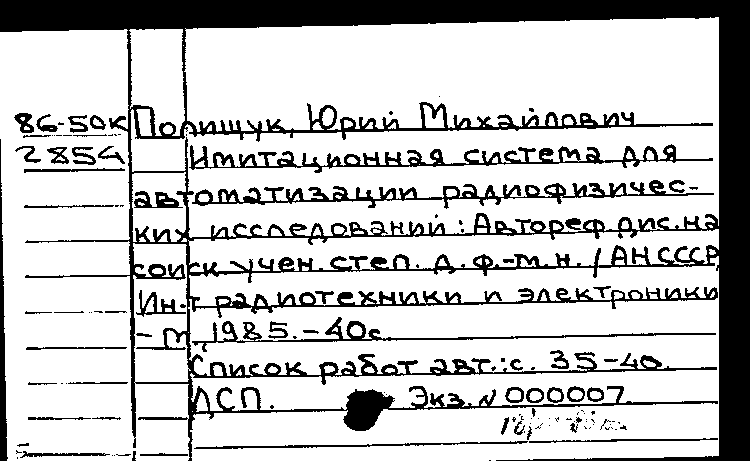 86-50к Полищук, Юрий Михайлович
2854 Имитационная система для
автоматизации радиофизичес-
ких исследований: Автореф.дис.на
соиск.учен.степ. д. ф.-м.н. / АН СССР,
Ин-т радиотехники и электроники
- М., 1985. - 40с.
Список работ авт.: с. 35-40.
ДСП. Экз. № 000007.